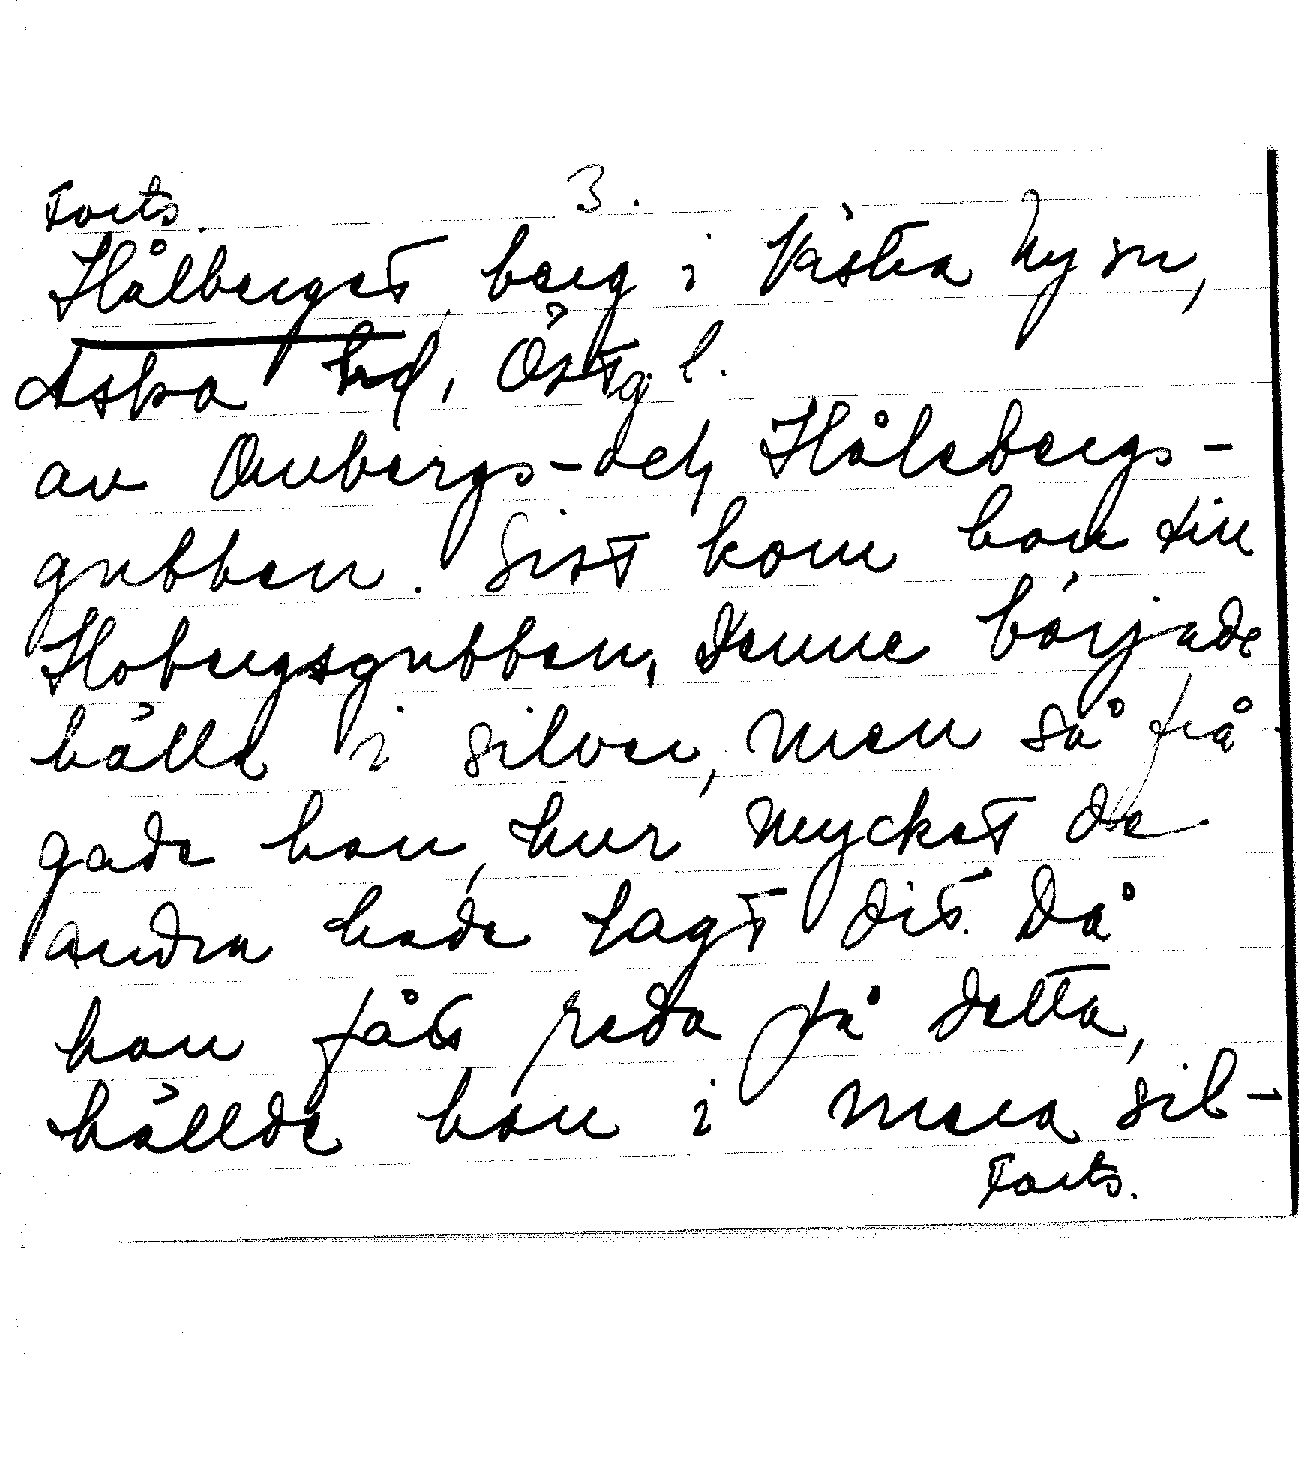 Forts. 3.
Hålberget, berg i Västra Ny sn,
Aska hd, Östg. l.
av Ombergs- och Hålebergs-
gubben. Sist kom han till
Hobergsgubben, Denne började
hälla i silver, men så frå-
gade han, hur mycket de
andra hade lagt dit. Då
han fått reda på detta,
hällde han i mera sil-
Forts.